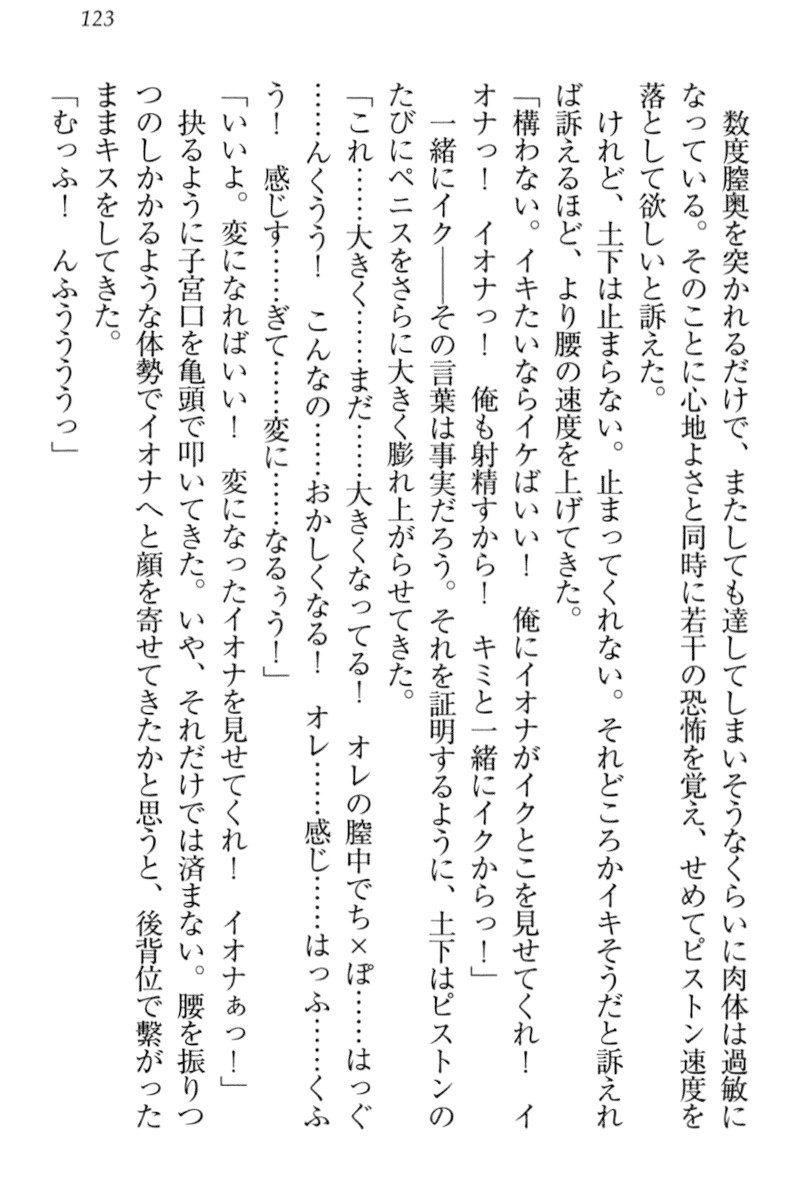 123
数度膣奥を突かれるだけで、またしても達してしまいそうなくらいに肉体は過敏に
なっている。そのことに心地よさと同時に若干の恐怖を覚え、せめてピストン速度を
落として欲しいと訴えた。
けれど、土下は止まらない。止まってくれない。それどころかイキそうだと訴えれ
ば訴えるほど、より腰の速度を上げてきた。
「構わない。イキたいならイケばいい！　俺にイオナがイクとこを見せてくれ！　イ
オナっ！　イオナっ！　俺も射精すから！　キミと一緒にイクからっ！」
一緒にイク――その言葉は事実だろう。それを証明するように、土下はピストンの
たびにペニスをさらに大きく膨れ上がらせてきた。
「これ……大きく……まだ……大きくなってる！　オレの膣中でち×ぽ……はっぐ
……んくうう！　こんなの……おかしくなる！　オレ……感じ……はっふ……くふ
う！　感じす……ぎて……変に……なるぅう！」
「いいよ。変になればいい！　変になったイオナを見せてくれ！　イオナぁっ！」
抉るように子宮口を亀頭で叩いてきた。いや、それだけでは済まない。腰を振りつ
つのしかかるような体勢でイオナへと顔を寄せてきたかと思うと、後背位で繋がった
ままキスをしてきた。
「むっふ！　んふうううっ」